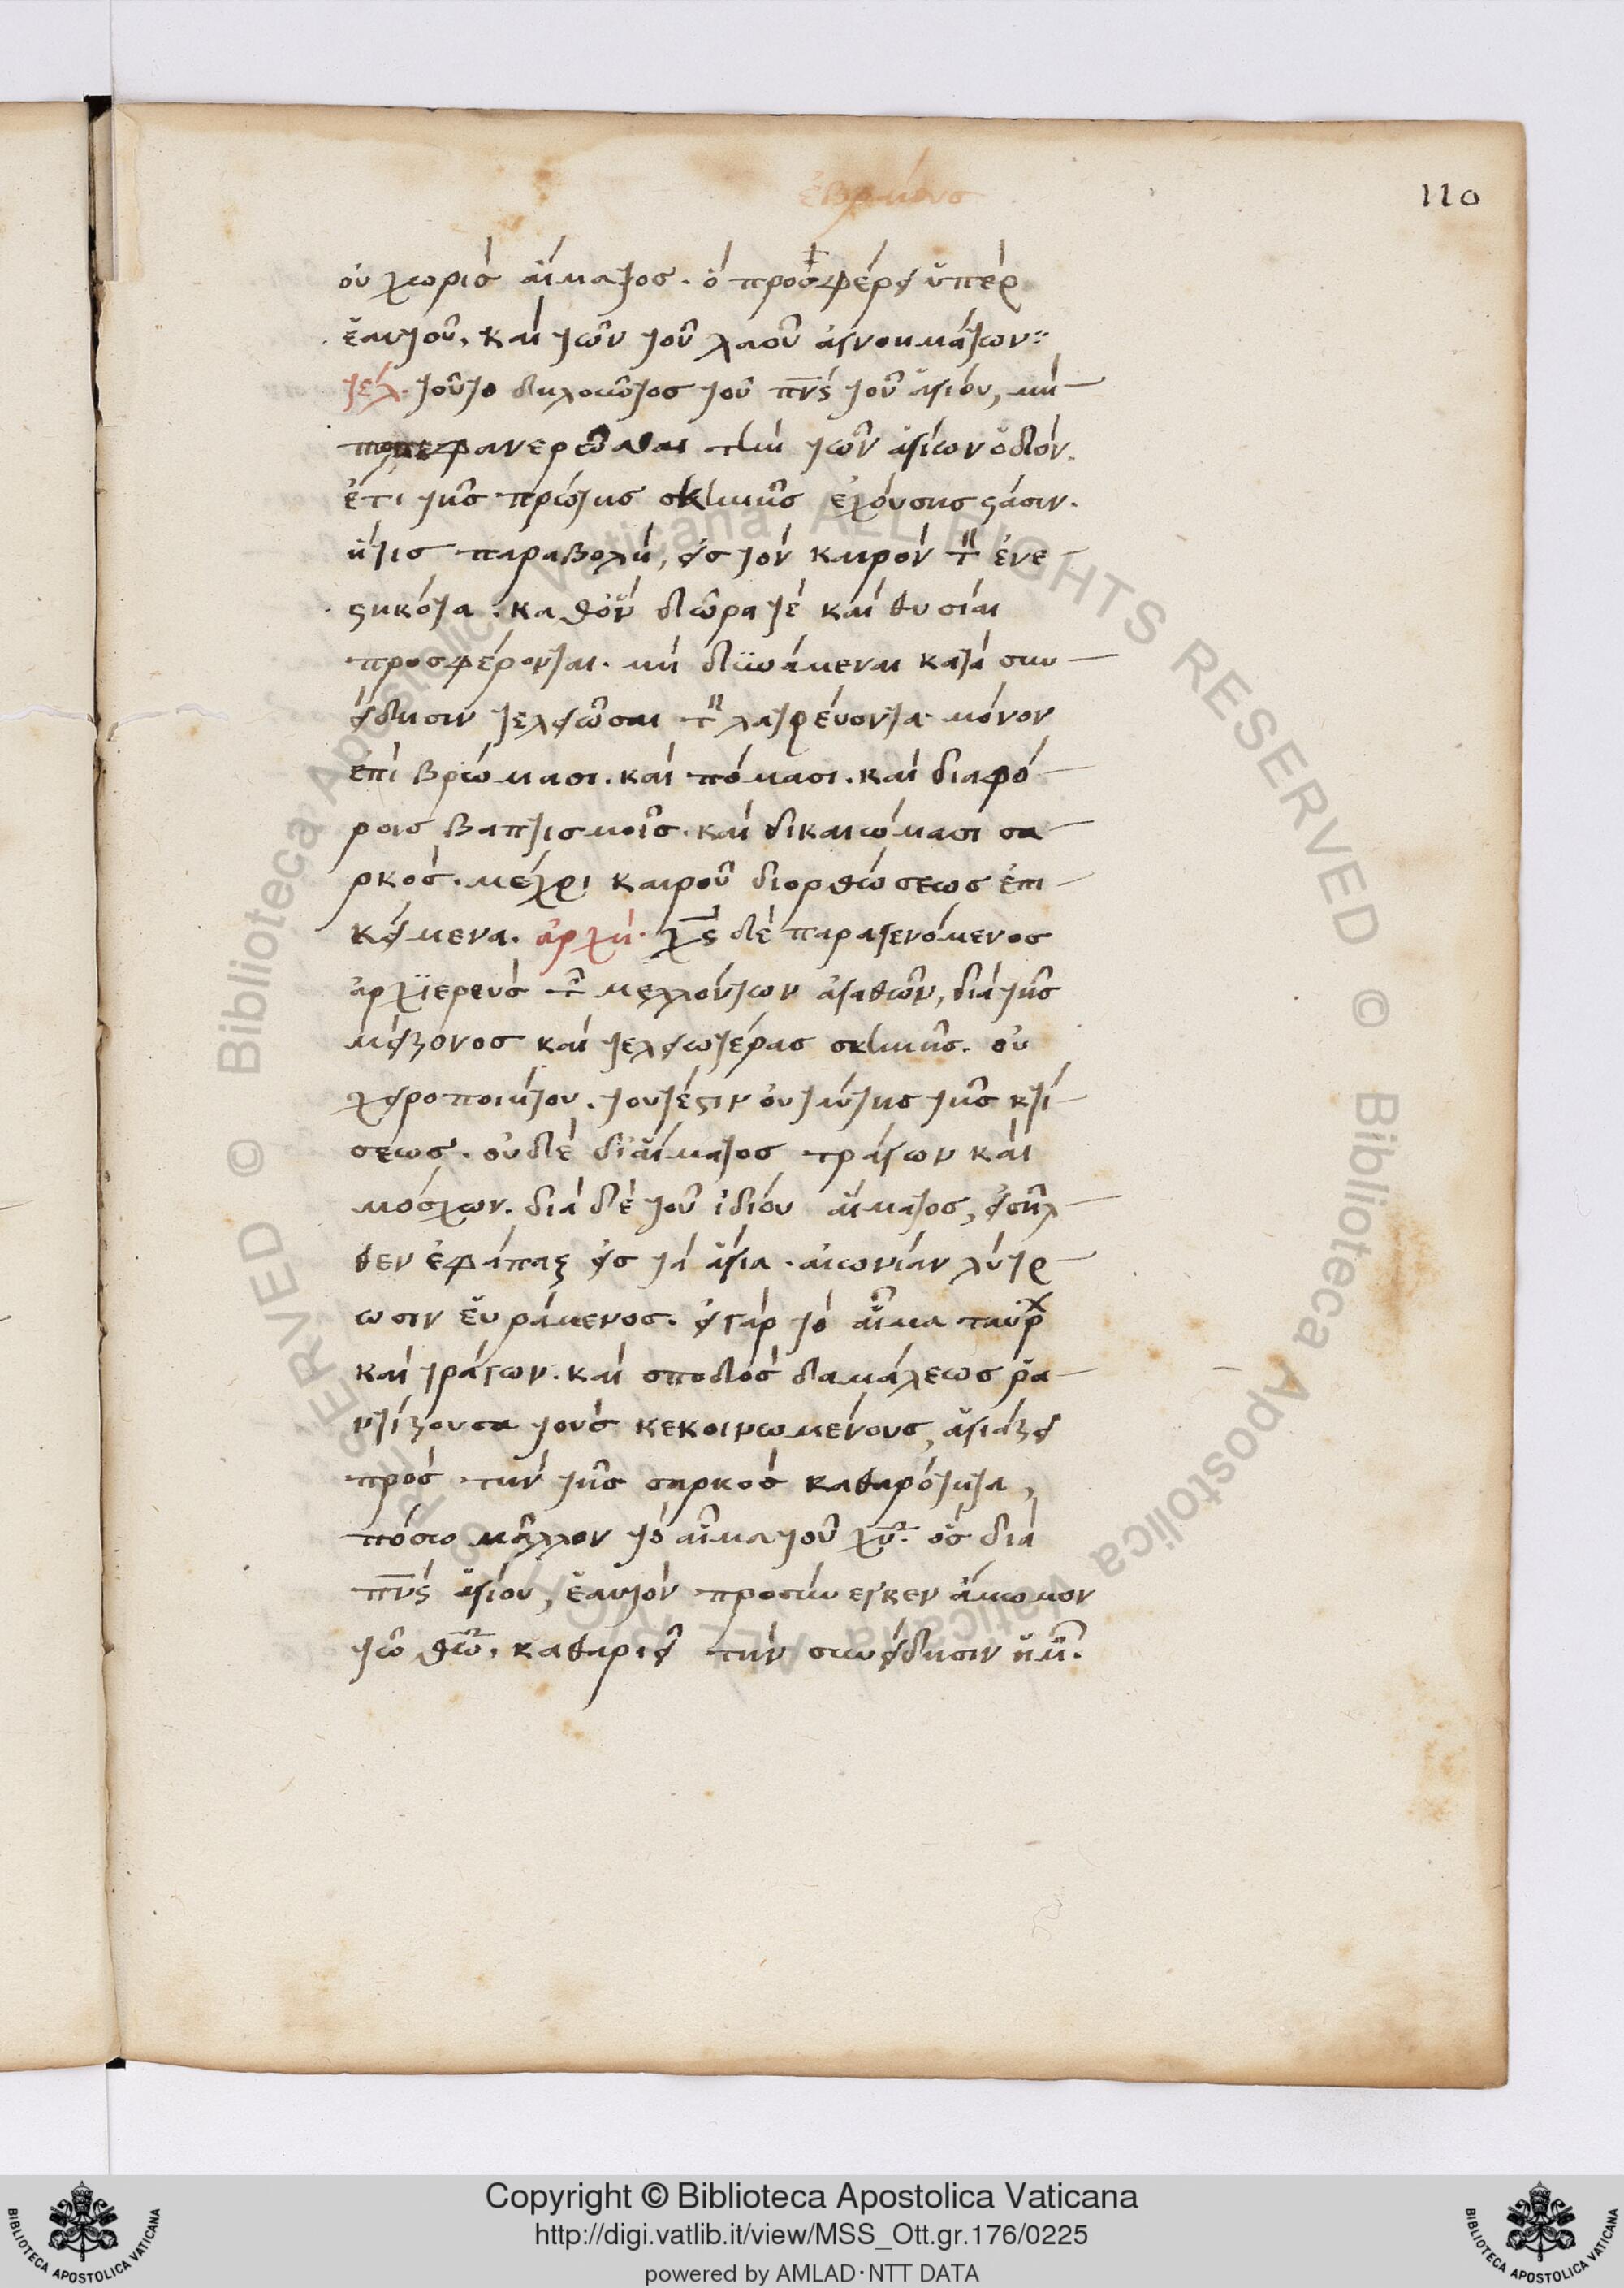 ἑβραίους
110
οὐ χωρὶς αἵματος. ὁ προσφέρει ὑπὲρ
ἑαυτοῦ, καὶ τῶν τοῦ λαοῦ ἀγνοημάτων:
τελ. τοῦτο δηλοῦντος τοῦ πν̅ς τοῦ ἁγίου, μή
πωπεφανερῶσθαι τὴν τῶν ἁγίων ὁδόν.
ἔτι τῆς πρώτης σκηνῆς ἐχούσης στάσιν.
ἥτις παραβολὴ, εἰς τὸν καιρὸν τ ἐνε
στηκότα. καθὃν δῶρα τὲ καὶ θυσίαι
προσφέρονται. μὴ δυνάμεναι κατὰ συν
είδησιν τελειῶσαι τ λατρεύοντα. μόνον
ἐπὶ βρώμασι. καὶ πόμασι. καὶ διαφό
ροις βαπτισμοῖς. καὶ δικαιώμασι σα
ρκὸς. μέχρι καιροῦ διορθώσεως ἐπι
κείμενα. ἀρχὴ. χ̅ς δὲ παραγενόμενος
ἀρχϊερεὺς τ μελλόντων ἀγαθῶν, διὰ τῆς
μείζονος καὶ τελειωτέρας σκηνῆς. οὐ
χειροποιήτου. τουτέστιν οὐ ταύτης τῆς κτί
σεως. οὐδὲ δι αἵματος τράγων καὶ
μόσχων. διὰ δὲ τοῦ ἰδίου αἵματος, εἰσῆλ
θεν ἐφάπαξ εἰς τὰ ἅγια. αἰωνίαν λύτρ
ωσιν εὑράμενος. εἰ γὰρ τὸ αἷμα ταύρ
καὶ τράγων. καὶ σποδὸς δαμάλεως ῥα
ντίζουσα τοὺς κεκοινωμένους, ἁγιάζει
πρὸς τὴν τῆς σαρκὸς καθαρότητα,
πόσω μᾶλλον τὸ αἷμα τοῦ χ̅υ. ὃς διὰ
πν̅ς ἁγίου, ἑαυτὸν προσήνεγκεν ἄμωμον
τῶ θ̅ω. καθαριεῖ τὴν συνείδησιν ἡμ.
Copyright © Biblioteca Apostolica Vaticana
http://digi.vatlib.it/view/MSS_Ott.gr.176/0225
powered by AMLAD·NTT DATA